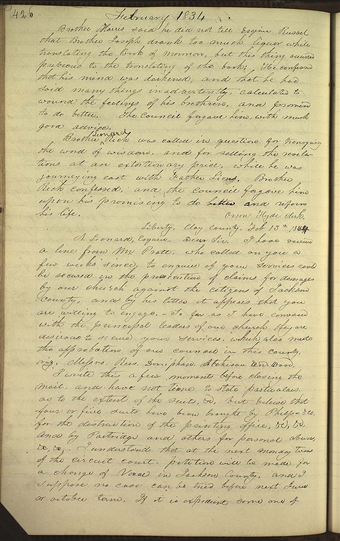 426
February 1834
Brother Harris said he did not tell Esquire Russel
that Brother Joseph drank too much liquor while
translating the Book of Mormon, but this thing occured
previous to the translating of the book. He confessed
that his mind was darkened, and that he had
said many things inadvertently, calculated to
wound the feelings of his brethren, and promised
to do better. The Council forgave him with much
good advice.
Leonard
Brother Rich was called in question for transgressing
the word of wisdom, and for selling the revela-
tions at an extortionary price, while he was
journeying east with Father Lions. Brother
Rich confessed, and the council forgave him
upon his promising to do better and reform
his life. Orson Hyde Clerk
Liberty, Clay County, Feb 13th 1834
A. Leonard, Esquire, Dear Sir, I have received
a line from Mr Pratt, who called on you a
few weeks since to enquire if your services could
be secured in the prosecution of claims for damages
by our church against the citizens of Jackson
County, and by his letter it appears that you
are willing to engage. So far as I have conversed
with the principal leaders of our church they are
desirous to secure your services, which also meets
the approbation of our counsel in this county,
viz, Messrs. Rees, Doniphan Atchison & Wood.
I write this a few moments before closing the
mail, and have not time to state particulars
as to the extent of the suits, &c, but believe that
four or five suits have been brought by Phelps & Co
for the destruction of the printing office, &c, &c.
and by Partridge and others for personal abuse,
&c, &c. I understand that at the next monay term
of the circuit court, petition will be made for
a change of Venue in Jackson County, and I
suppose no case can be tried before next June
or october term. If it is expedient some one of